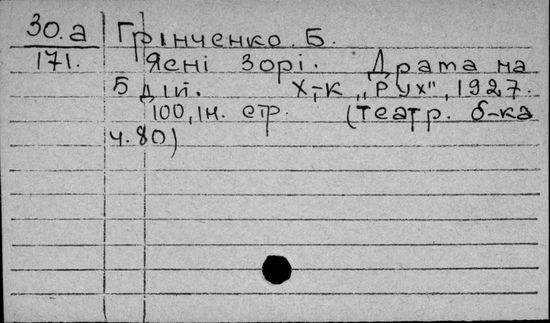 30.а Грінченко. Б.
171. Ясні Зорі. Драма на
5 дій. Х-к „Рух", 1927.
100, ін. стр. (театр. б-ка
ч. 80)